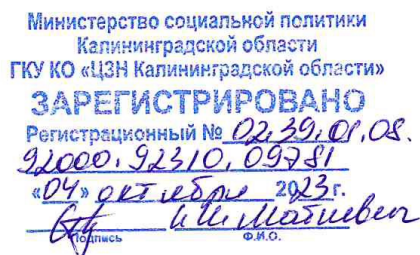 Министерство социальной политики
Калининградской области
ГКУ КО «ЦЗН Калининградской области»
ЗАРЕГИСТРИРОВАНО
Регистрационный № 02.39.01.08.
92000.92310.09781
«04» октября 2023г.
И.И. Матиевич
Подпись Ф.И.О.